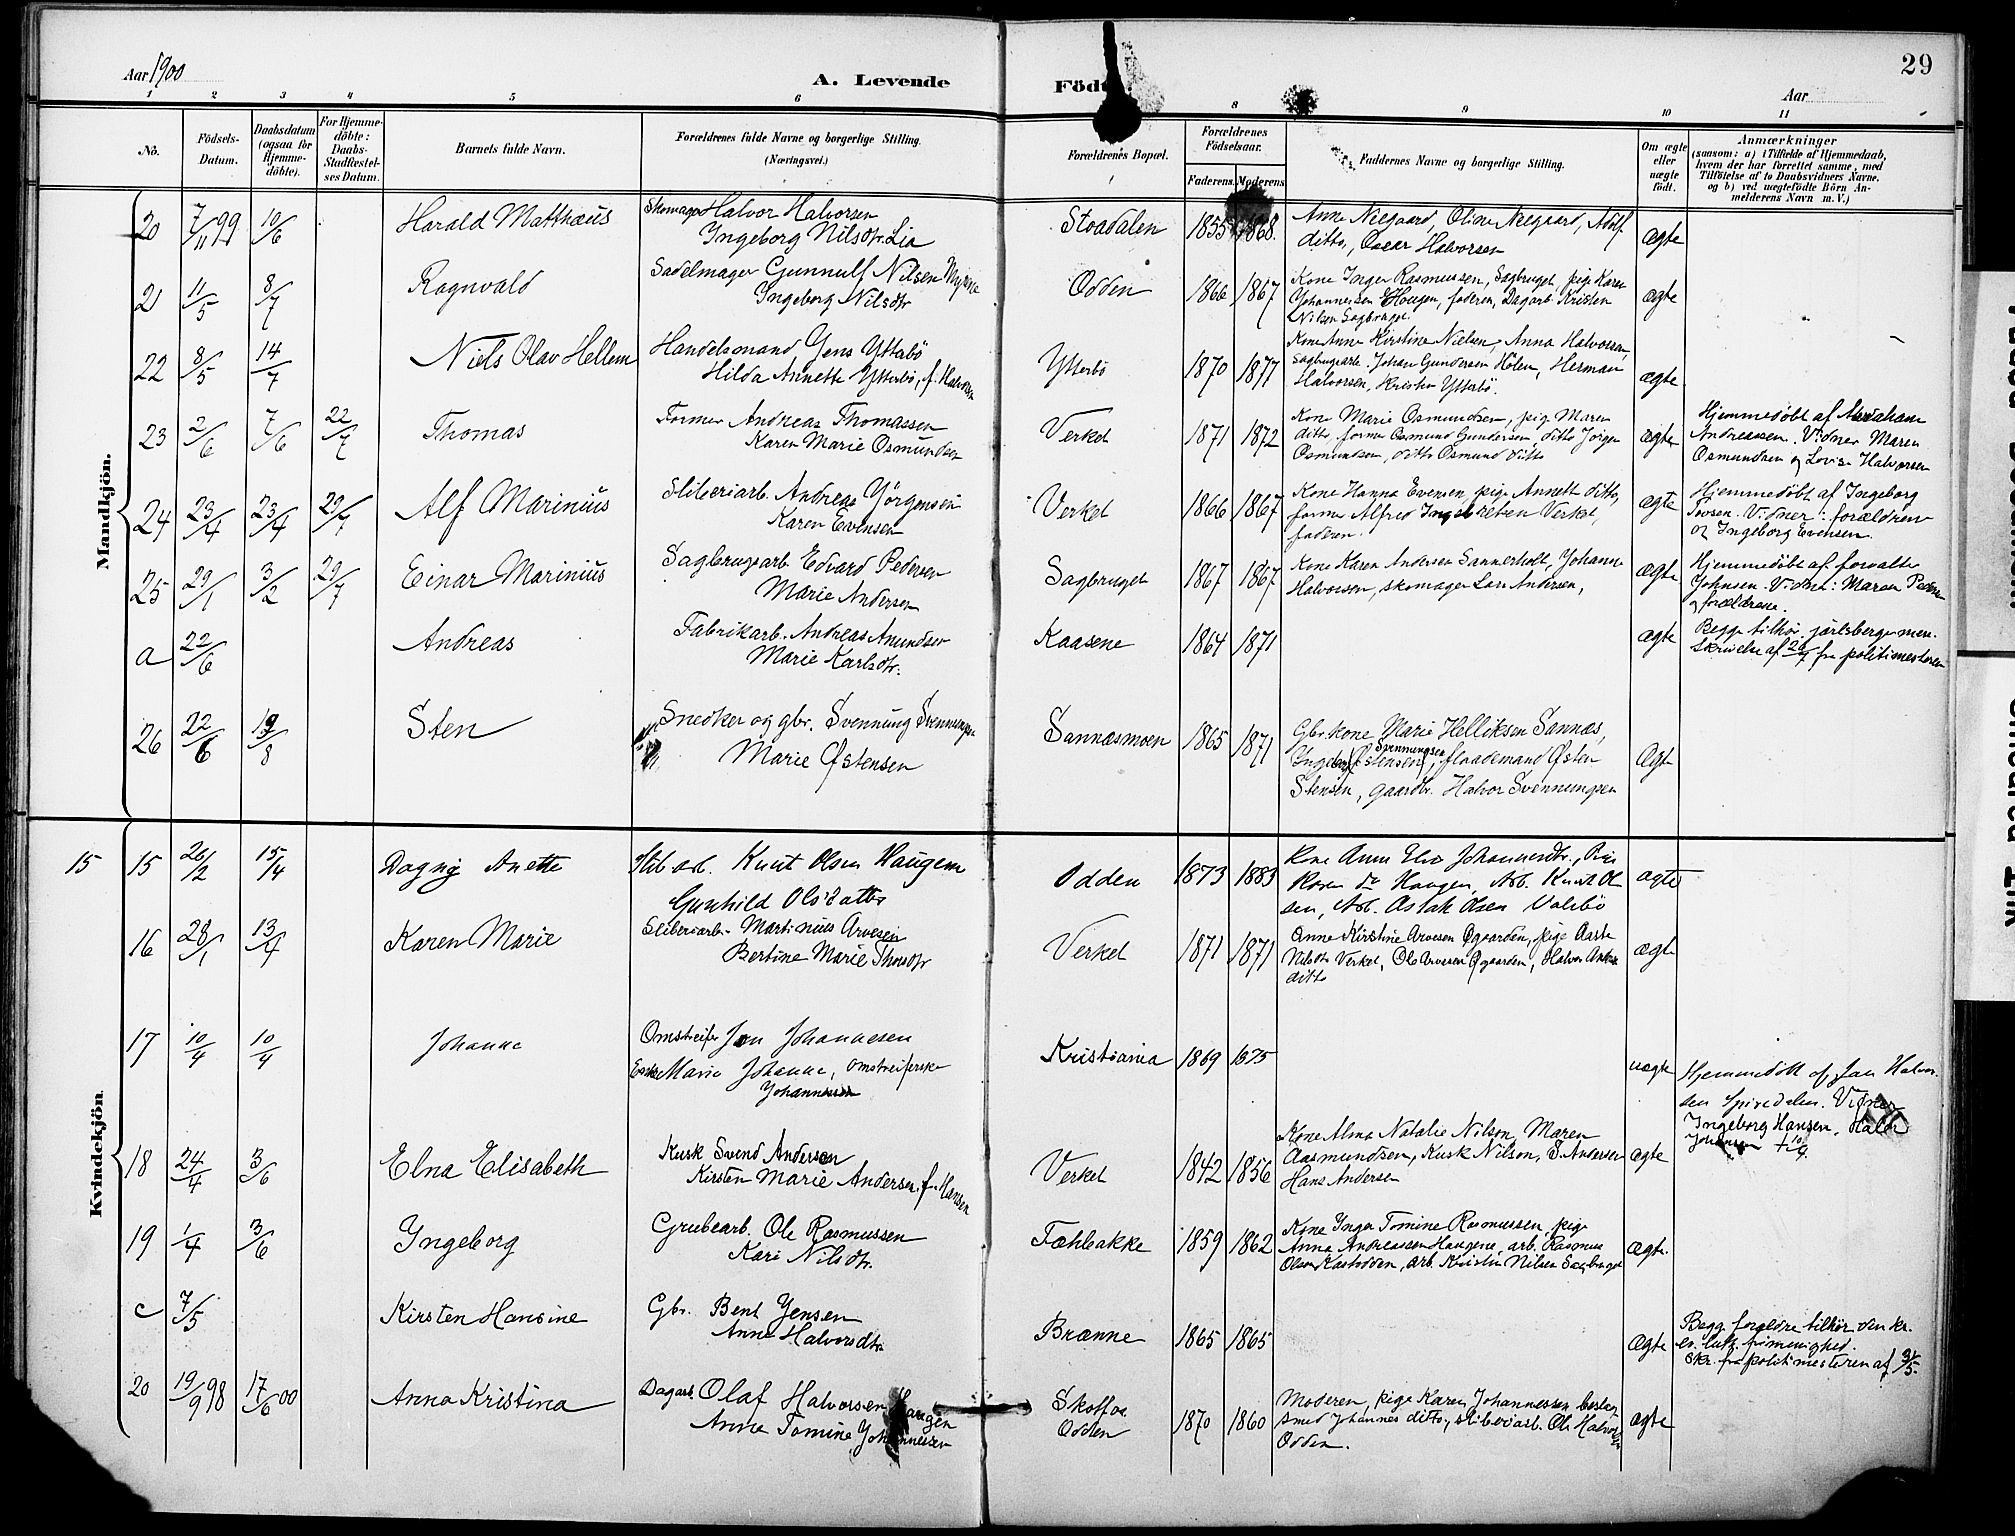 29
Aar 1900
A. Levende
Födte.
Aar
1 2 3 4 5 6 8 9 10 11
No.
Födsels-Datum.
Daabsdatum (ogsaa for Hjemme-döbte).
For Hjemme-döbte: Daabs-Stadfæstel-ses Datum.
Barnets fulde Navn.
Forældrenes fulde Navne og borgerlige Stilling. (Næringsvei.)
Forældrenes Bopæl.
Forældrenes Födselsaar.
Faderens. Moderens.
Faddernes Navne og borgerlige Stilling.
Om ægte eller uægte födt.
Anmærkninger
(saasom: a) i Tilfælde af Hjemmedaab,
hvem der har forrettet samme, med
Tilföielse af to Daabsvidners Navne,
og b) ved uægtefödte Börn An-
melderens Navn m. V.)
Mandkjön.
20 7/11 99 10/6 Harald Matthæus
Skomager Halvor Halvorsen
Ingeborg Nilsdtr. Lia
Stoadalen 1855 1868.
Anne Nilgaard, Oline Nilgaard, Adolf
ditto, Oscar Halvorsen
ægte
21 11/5 8/7 Ragnvald
Sadelmager Gunnulf Nilsen Myrene
Ingeborg Nilsdtr
Odden 1866 1867
Kone Inger Rasmussen, Sagbruget, pige Karen
Johannessen Hougen, faderen, Dagarb. Kristen
Nilsen Sagbruget.
ægte
22 8/5 14/7 Niels Olav Hellem
Handelsmand Jens Ytterbö
Hilda Annette Ytterbö, f. Halvorsen
Ytterbö 1870 1877
Kone Anne Kirstine Nielsen, Anna Halvorsen,
Sagbrugsarb. Johan Gundersen Holen, Herman
Halvorsen, Kristen Ytterbö.
ægte
23 2/6 7/6 22/7 Thomas
Former Andreas Thomassen
Karen Marie Osmundsen
Verket 1871 1872
Kone Marie Osmundsen, pige Maren
ditto, former Osmund Gundersen, ditto Jörgen
Osmundsen, ditto Osmund ditto
ægte
Hjemmedöbt af Abraham
Andreassen. Vidner Maren
Osmundsen og Lovise Halvorsen
24 23/4 23/4 29/7 Alf Marinius
Sliberiarb. Andreas Jörgensen
Karen Evensen
Verket 1866 1867
Kone Hanna Evensen, pige Annett ditto,
former Alfred Ingebretsen Verket,
faderen.
ægte
Hjemmedöbt af Ingeborg
Tovsen. Vidner: forældrene
og Ingeborg Evensen.
25 29/1 3/2 29/7 Einar Marinius
Sagbrugsarb. Edvard Pedersen
Marie Andersen
Sagbruget 1867 1867
Kone Karen Andersen Sannerholt, Johanne
Halvorsen, skomager Lars Andersen,
ægte
Hjemmedöbt af forvalter
Johnsen. Vidner: Maren Pedersen
og forældrene.
a 22/6 Andreas
Fabrikarb. Andreas Amundsen
Marie Karlsdtr.
Kaasene 1864 1871
ægte
Begge tilhör jarlsbergs men.
Skrivelse af 20/7 fra politimesteren
26 22/6 19/8 Sten
Snedker og gbr. Svennung Svennungsen
Marie Østensen
Sannæsmoen 1865 1871
Gbr.kone Marie Helliksen Sannæs,
Ingeborg Østensen Svennungsen, flaademand Østen
Stensen, gaardbr. Halvor Svennungsen
Ægte
Kvindekjön.
15 15 26/2 15/4 Dagny Anette
Slib. arb. Knut Olsen Haugene
Gunhild Olsdatter
Odden 1873 1883
Kone Anne Elise Johannesdtr., Pige
Karen do Haugen, Arb. Knut Ol
sen, Arb. Aslak Olsen Valebö
ægte
16 28/1 13/4 Karen Marie
Sliberiarb. Martinius Arvesen
Bertine Marie Thorsdtr
Verket 1871 1871
Anne Kirstine Arvesen Øgaarden, pige Aaste
Nilsdtr Verket, Ole Arvesen Øgaarden, Halvor
ditto
ægte
17 10/4 10/4 Johanne
Omstreifer Jon Johannesen
Enke Marie Johanne, omstreiferske
Johannessen
Kristiania 1869 1875
uægte
Hjemmedöbt af Jan Halvor-
sen Spiredalen. Vidner
Ingeborg Hansen, Halvor
Johansen † 10/4.
18 24/4 3/6 Elna Elisabeth
Kusk Svend Andersen
Kirsten Marie Andersen f. Hansen
Verket 1842 1856
Kone Alma Natalie Nilson, Maren
Aasmundsen, Kusk Nilson, S. Andersen
Hans Andersen
ægte
19 1/4 3/6 Ingeborg
Grubearb. Ole Rasmussen
Kari Nilsdtr.
Fæhbakke 1859 1862
Kone Inger Tomine Rasmussen, pige
Anna Andreassen Haugene, arb. Rasmus
Olsen Kastodden, arb. Kristen Nilsen Sagbruget
Ægte.
c 7/5 Kirsten Hansine
Gbr. Bent Jensen
Anne Halvorsdtr.
Brænne 1865 1865
Ægte
Begge foreldre tilhör den kr.
ev. luth. frimenighed.
Skr. fra politimesteren af 31/5.
20 19/9 98 17/6 00 Anna Kristina
Dagarb. Olaf Halvorsen Haugen
Anne Tomine Johannessen
Skotfos
Odden
1870 1860
Moderen, pige Karen Johannessen
smed Johannes ditto, sliberiarb. Ole Halvorsen
Odden.
ægte